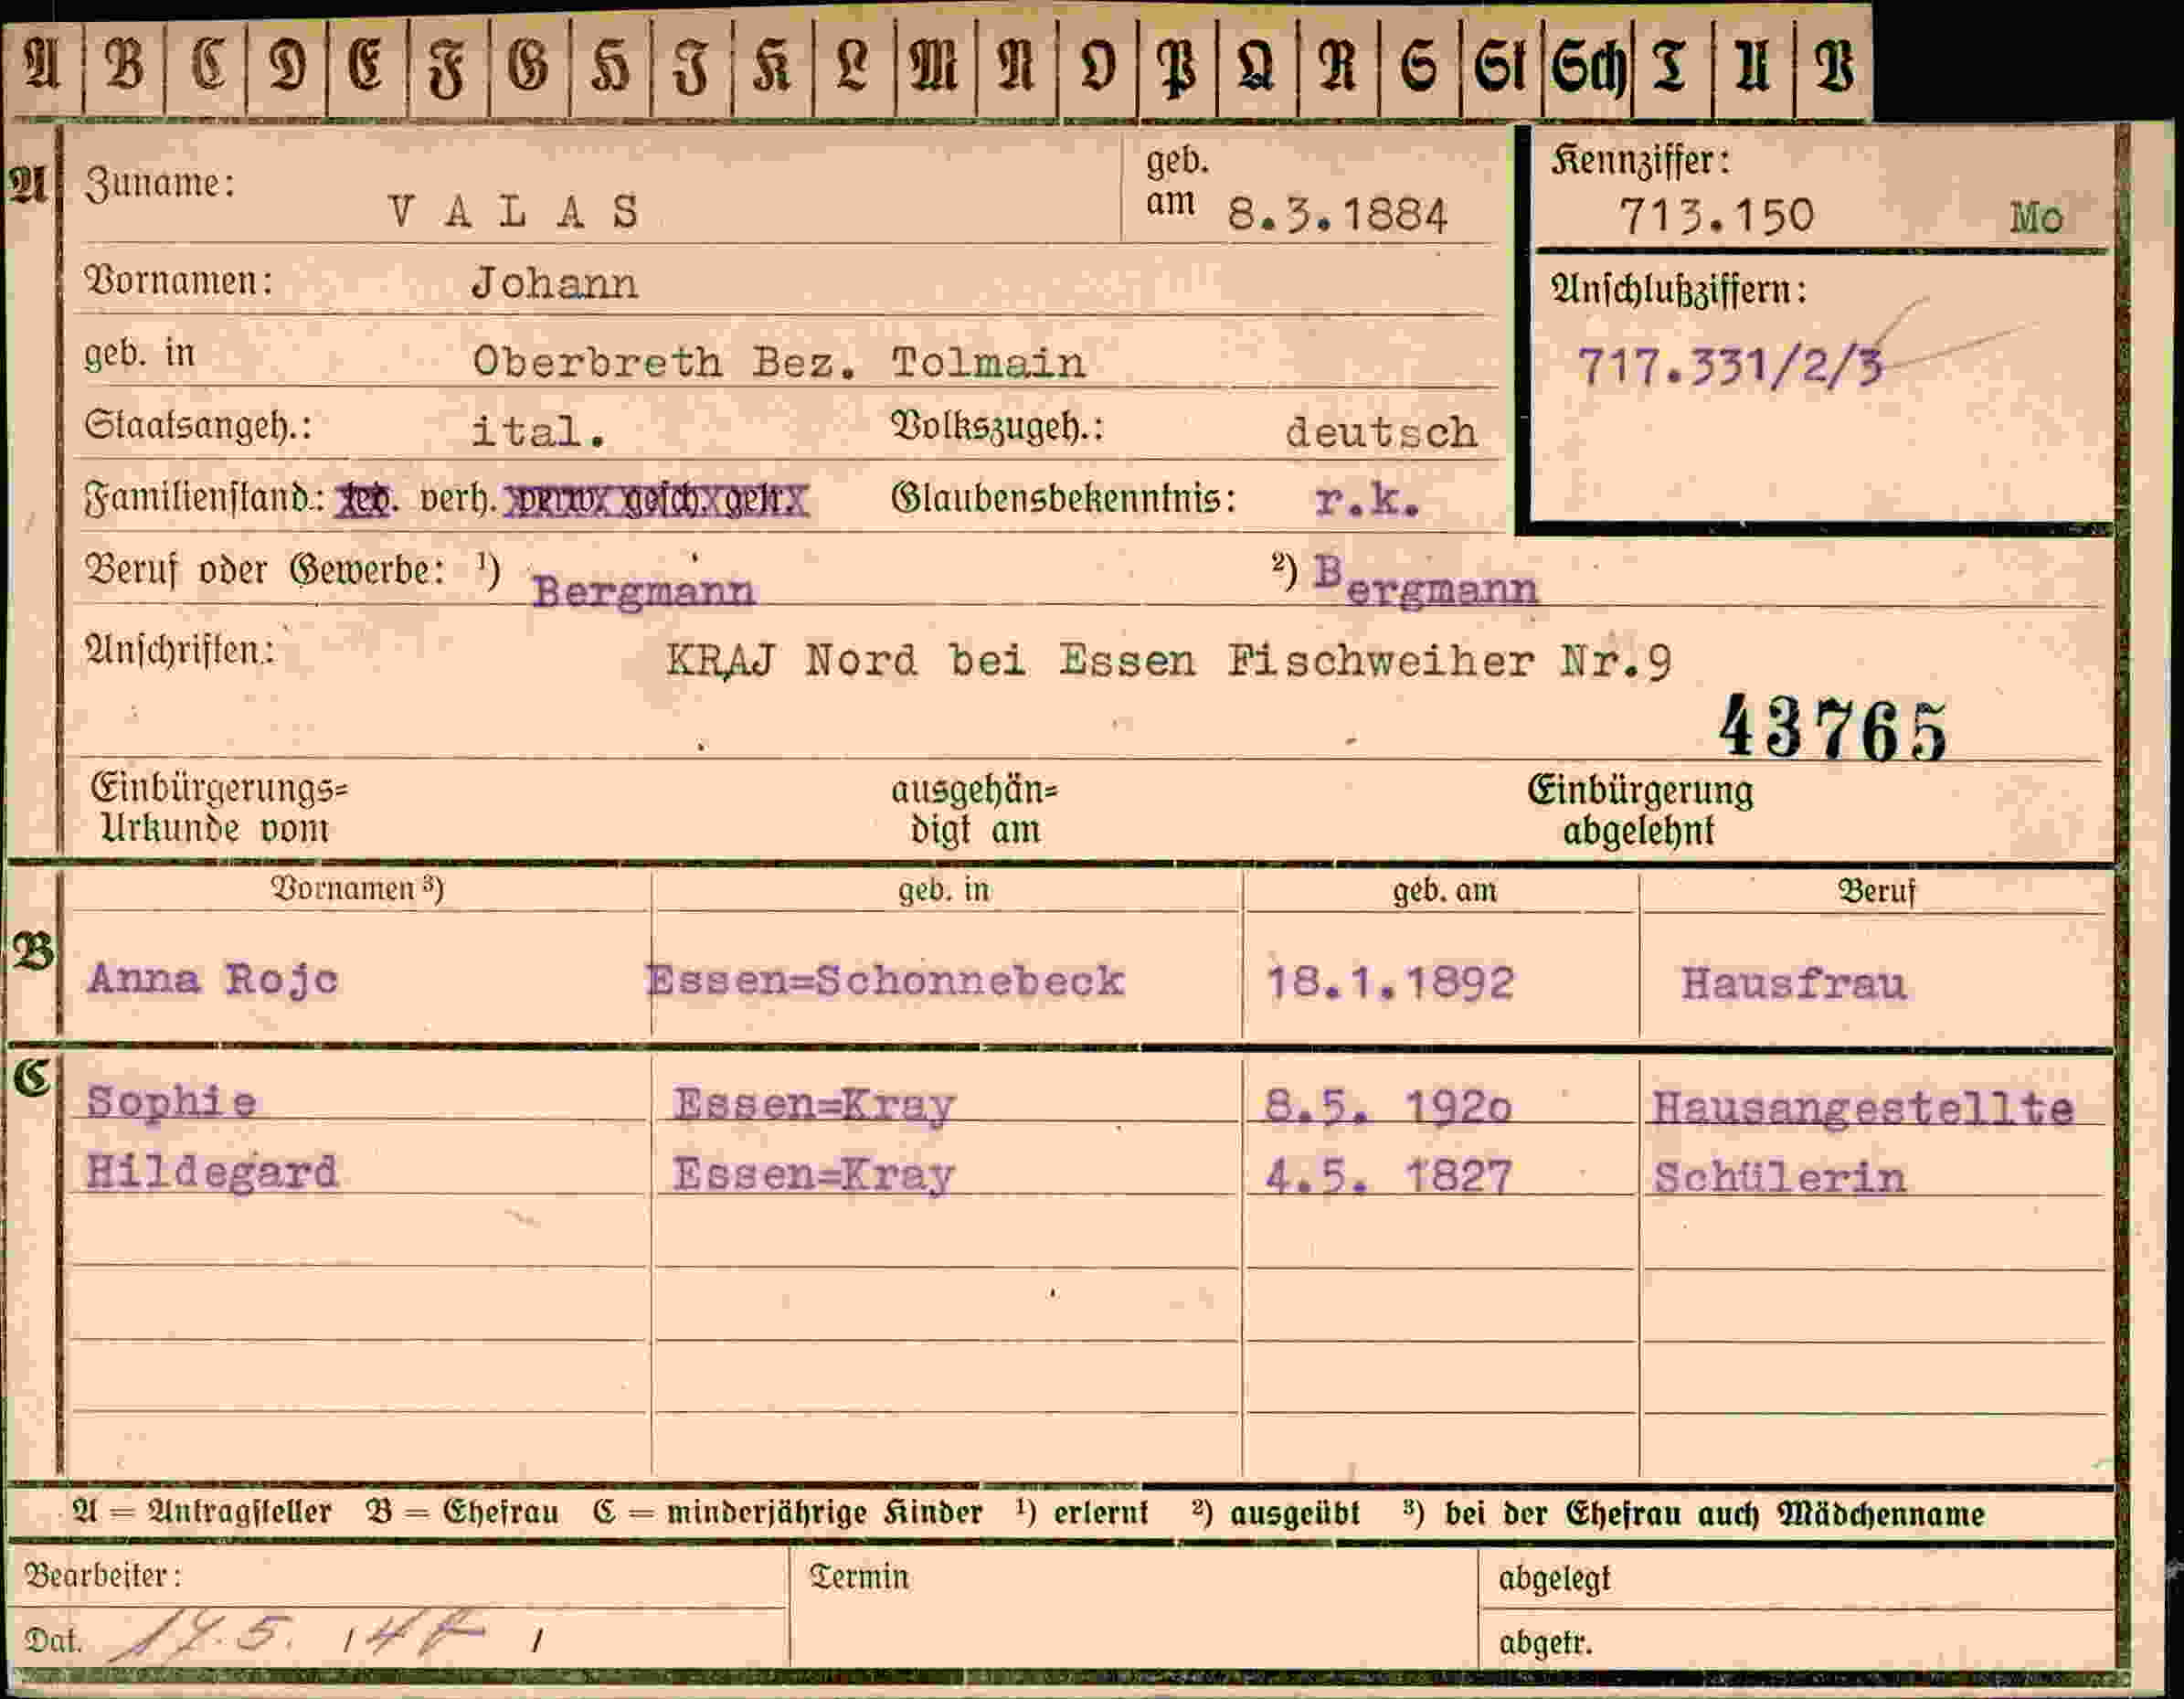 A B C D E F G H J K L M N O P Q R S St Sch T U V
A Zuname: VALAS geb. am 8.3.1884 Kennziffer: 713.150 Mo
Vornamen: Johann Anschlußziffern:
geb. in Oberbreth Bez. Tolmain 717.331/2/3
Staatsangeh.: ital. Volkszugeh.: deutsch
Familienstand.: led. verh. verw. gesch. getr. Glaubensbekenntnis: r.k.
Beruf oder Gewerbe: ¹) Bergmann ²) Bergmann
Anschriften: KRAJ Nord bei Essen Fischweiher Nr.9
43765
Einbürgerungs= ausgehän= Einbürgerung
Urkunde vom digt am abgelehnt
Vornamen ³) geb. in geb. am Beruf
B Anna Rojc Essen=Schonnebeck 18.1.1892 Hausfrau
C Sophie Essen=Kray 8.5. 192o Hausangestellte
Hildegard Essen=Kray 4.5. 1827 Schülerin
A = Antragsteller B = Ehefrau C = minderjährige Kinder ¹) erlernt ²) ausgeübt ³) bei der Ehefrau auch Mädchenname
Bearbeiter: Termin abgelegt
Dat. abgetr.